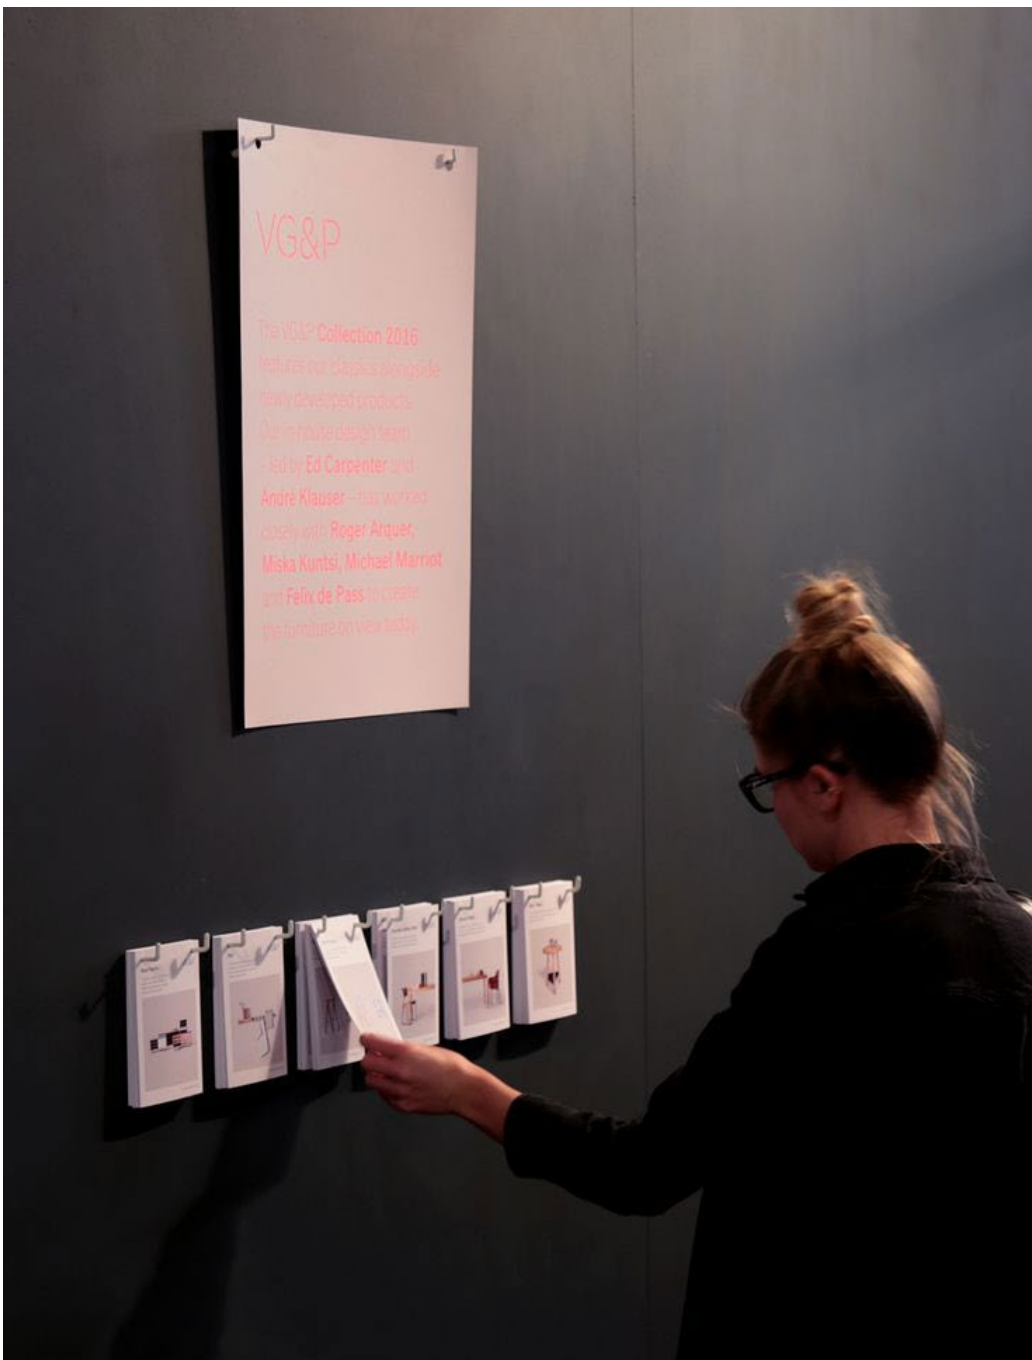 VG&P
The VG&P Collection 2016
features our classics alongside
newly developed products.
Our in-house design team
- led by Ed Carpenter and
André Klauser - has worked
closely with Roger Arquer,
Miska Kuntsi, Michael Marriot
and Felix de Pass to create
the furniture on view today.